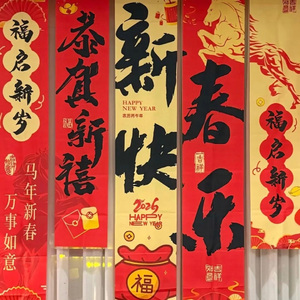 福启新岁
马年新春
万事如意
恭贺新禧
新
快
HAPPY
NEW YEAR
2026
HAPPY
NEW YEAR
福
春
乐
吉祥
福启新岁